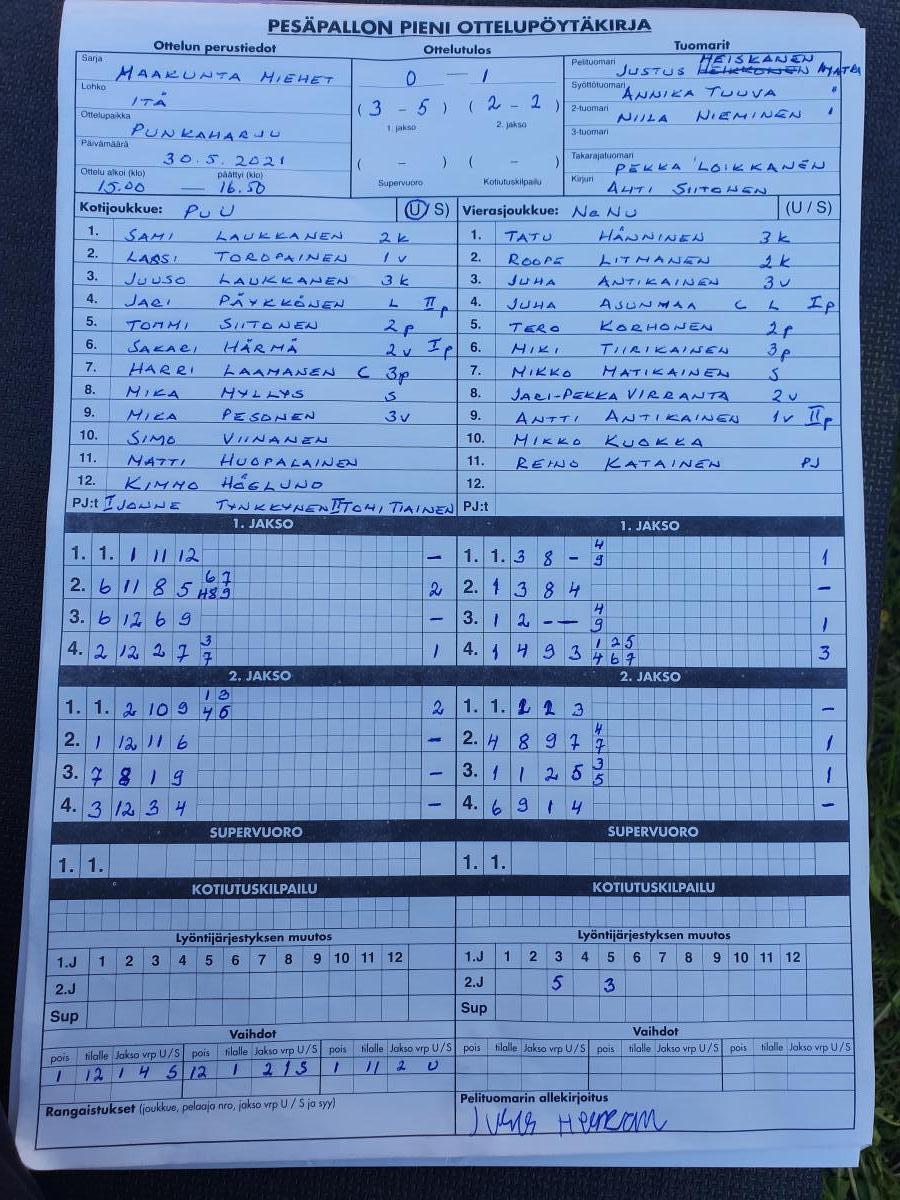 PESÄPALLON PIENI OTTELUPÖYTÄKIRJA
Ottelun perustiedot Ottelutulos Tuomarit
Sarja MAAKUNTA MIEHET
Lohko ITÄ
Ottelupaikka PUNKAHARJU
Päivämäärä 30.5.2021
Ottelu alkoi (klo) päättyi (klo)
15.00 — 16.50
0 – 1
(3 - 5) (2 - 2)
1. jakso 2. jakso
( - ) ( - )
Supervuoro Kotiutuskilpailu
Pelituomari JUSTUS HEISKANEN
Syöttötuomari ANNIKA TUUVA "
2-tuomari NIILA NIEMINEN "
3-tuomari
Takarajatuomari PEKKA LOIKKANEN
Kirjuri AHTI SIITONEN
Kotijoukkue: PuU (U/S) Vierasjoukkue: NaNu (U / S)
1. SAMI LAUKKANEN 2k 1. TATU HÄNNINEN 3k
2. LASSI TOROPAINEN 1v 2. ROOPE LITMANEN 2k
3. JUUSO LAUKKANEN 3k 3. JUHA ANTIKAINEN 3v
4. JARI PÄYKKÖNEN L IIp 4. JUHA ASUNMAA C L Ip
5. TOMMI SIITONEN 2p 5. TERO KORHONEN 2p
6. SAKARI HÄRMÄ 2v Ip 6. MIKI TIIRIKAINEN 3p
7. HARRI LAAMANEN C 3p 7. MIKKO MATIKAINEN S
8. MIKA MYLLYS S 8. JARI-PEKKA VIRRANTA 2v
9. MIKA PESONEN 3v 9. ANTTI ANTIKAINEN 1v IIp
10. SIMO VIINANEN 10. MIKKO KUOKKA
11. MATTI HUOPALAINEN 11. REINO KATAINEN PJ
12. KIMMO HÖGLUND 12.
PJ:t I JONNE TYNKKYNEN II TOMI TIAINEN PJ:t
1. JAKSO 1. JAKSO
1. 1. 1 11 12 – 1. 1. 3 8 – 4 9 1
2. 6 11 8 5 6 7 4 8 9 2 2. 1 3 8 4 –
3. 6 12 6 9 – 3. 1 2 – – 4 9 1
4. 2 12 2 7 3 7 1 4. 1 4 9 3 1 2 5 4 6 7 3
2. JAKSO 2. JAKSO
1. 1. 2 10 9 1 3 4 6 2 1. 1. 2 2 3 –
2. 1 12 11 6 – 2. 4 8 9 7 4 7 1
3. 7 8 1 9 – 3. 1 1 2 5 3 5 1
4. 3 12 3 4 – 4. 6 9 1 4 –
SUPERVUORO SUPERVUORO
1. 1. 1. 1.
KOTIUTUSKILPAILU KOTIUTUSKILPAILU
Lyöntijärjestyksen muutos Lyöntijärjestyksen muutos
1.J 1 2 3 4 5 6 7 8 9 10 11 12 1.J 1 2 3 4 5 6 7 8 9 10 11 12
2.J 2.J 5 3
Sup Sup
Vaihdot Vaihdot
pois tilalle Jakso vrp U/S pois tilalle Jakso vrp U/S pois tilalle Jakso vrp U/S pois tilalle Jakso vrp U/S pois tilalle Jakso vrp U/S pois tilalle Jakso vrp U/S
1 12 1 4 S 12 1 2 1 S 1 11 2 U
Rangaistukset (joukkue, pelaaja nro, jakso vrp U / S ja syy) Pelituomarin allekirjoitus